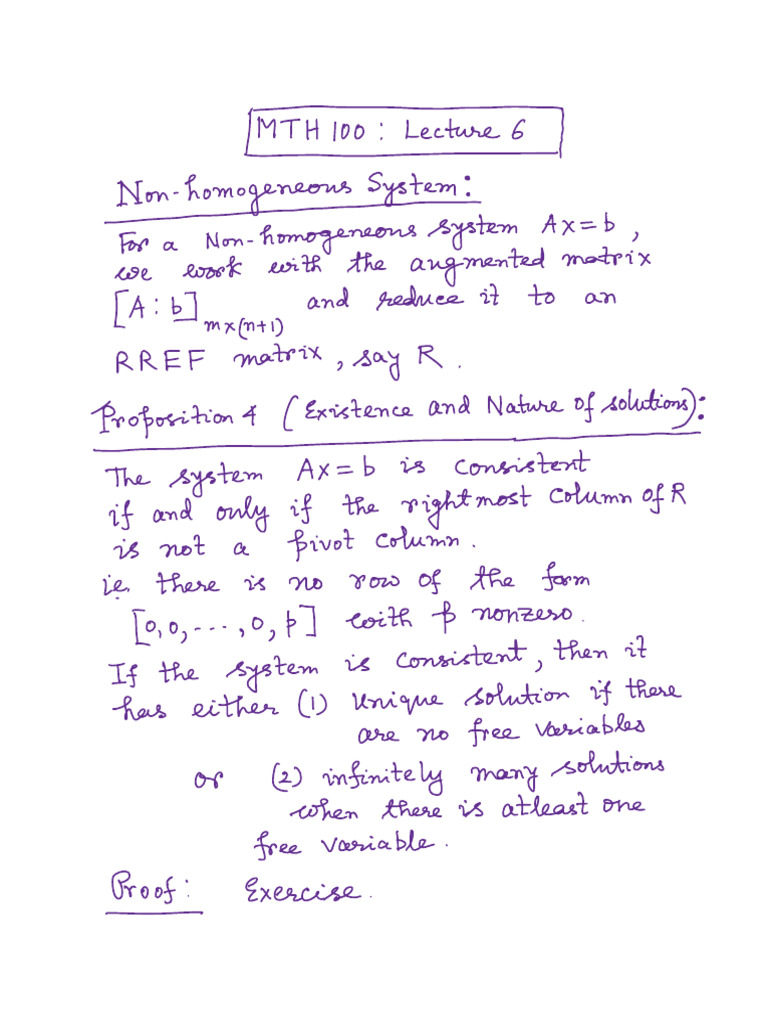 MTH 100 : Lecture 6
Non-homogeneous System:
For a Non-homogeneous system Ax=b,
we work with the augmented matrix
[A : b] m×(n+1) and reduce it to an
RREF matrix, say R.
Proposition 4 (Existence and Nature of solutions):
The system Ax=b is consistent
if and only if the rightmost column of R
is not a pivot column.
i.e. there is no row of the form
[0,0,---,0,p] with p nonzero.
If the system is consistent, then it
has either (1) Unique solution if there
are no free variables
or (2) infinitely many solutions
when there is atleast one
free variable.
Proof: Exercise.